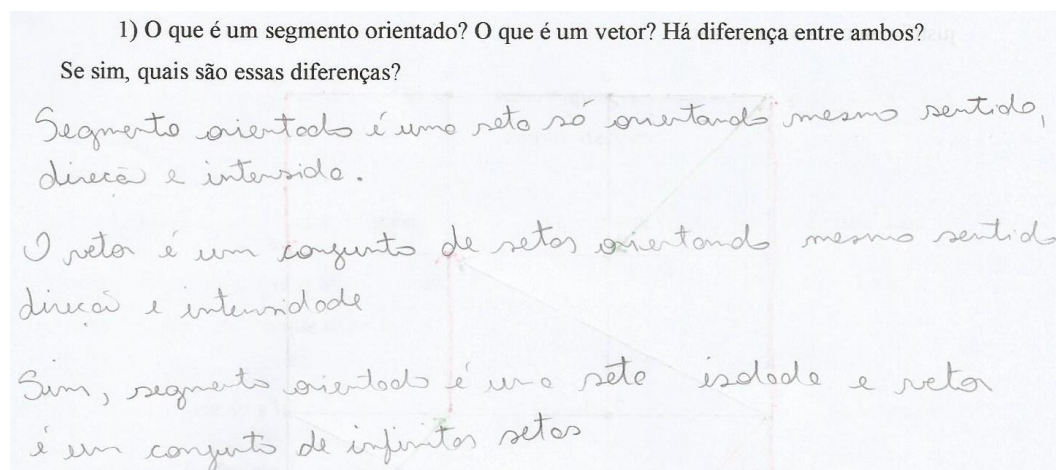 1) O que é um segmento orientado? O que é um vetor? Há diferença entre ambos?
Se sim, quais são essas diferenças?
Segmento orientado é uma seta só orientando mesmo sentido,
direcã e intensida.
O vetor é um conjunto de setas orientando mesmo sentido
direcã e intensidade
Sim, segmento orientado é uma seta isolada e vetor
é um conjunto de infinitas setas